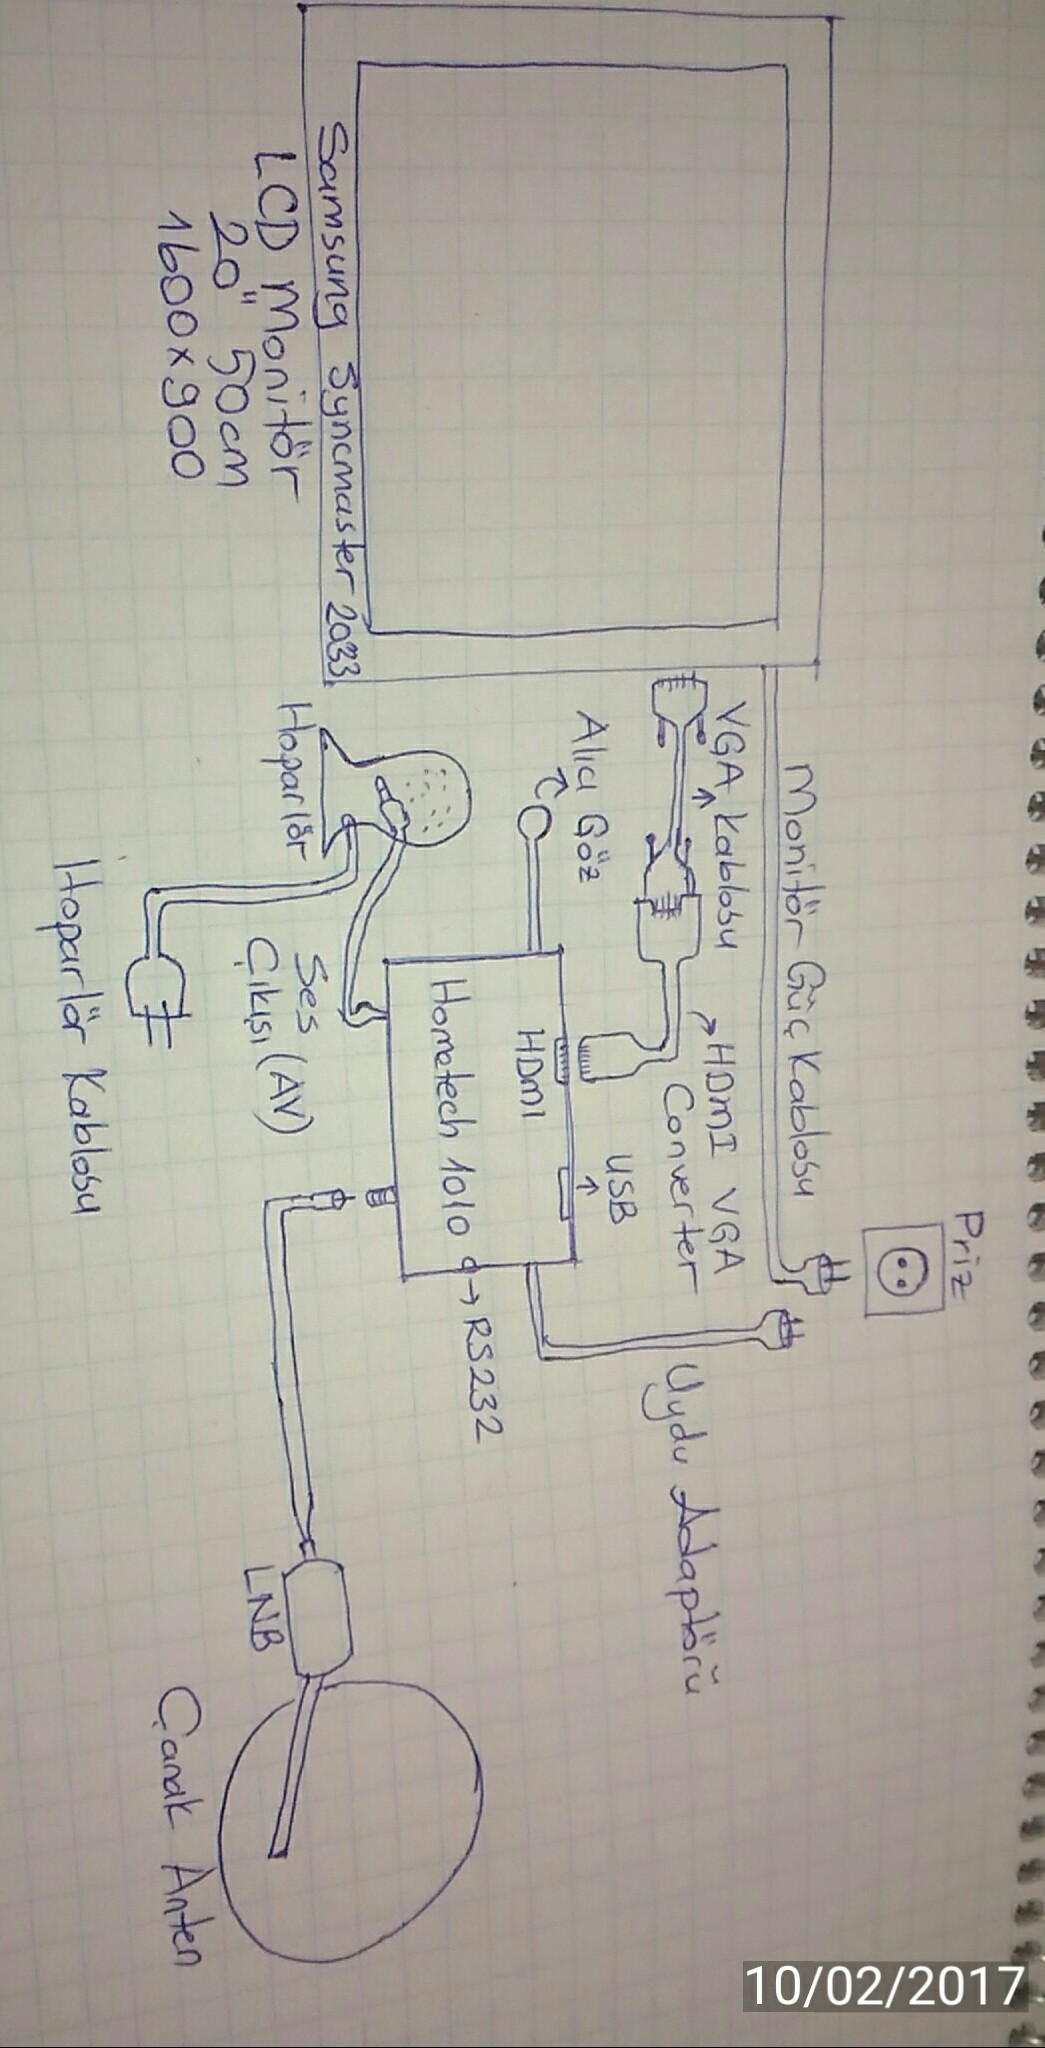 Priz
Monitör Güç Kablosu
VGA Kablosu
HDMI VGA
Converter
Uydu Adaptörü
Alıcı Göz
USB
HDMI
Hometech 1010
RS232
Samsung Syncmaster 2033
LCD Monitör
20" 50cm
1600x900
Hoparlör
Ses
Çıkışı (AV)
Hoparlör Kablosu
LNB
Çanak Anten
10/02/2017